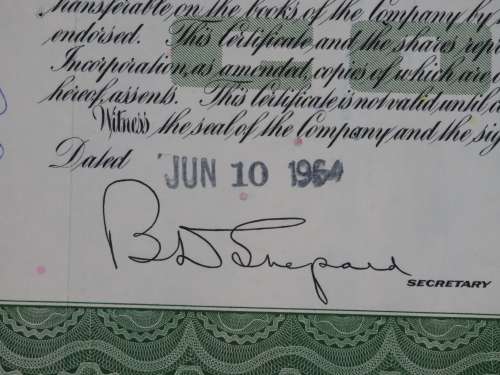 transferable on the books of the Company by
endorsed. This Certificate and the shares rep
Incorporation, as amended, copies of which are
hereof, assents. This Certificate is not valid until
Witness the seal of the Company and the sig
Dated JUN 10 1964
B D Shepard
SECRETARY